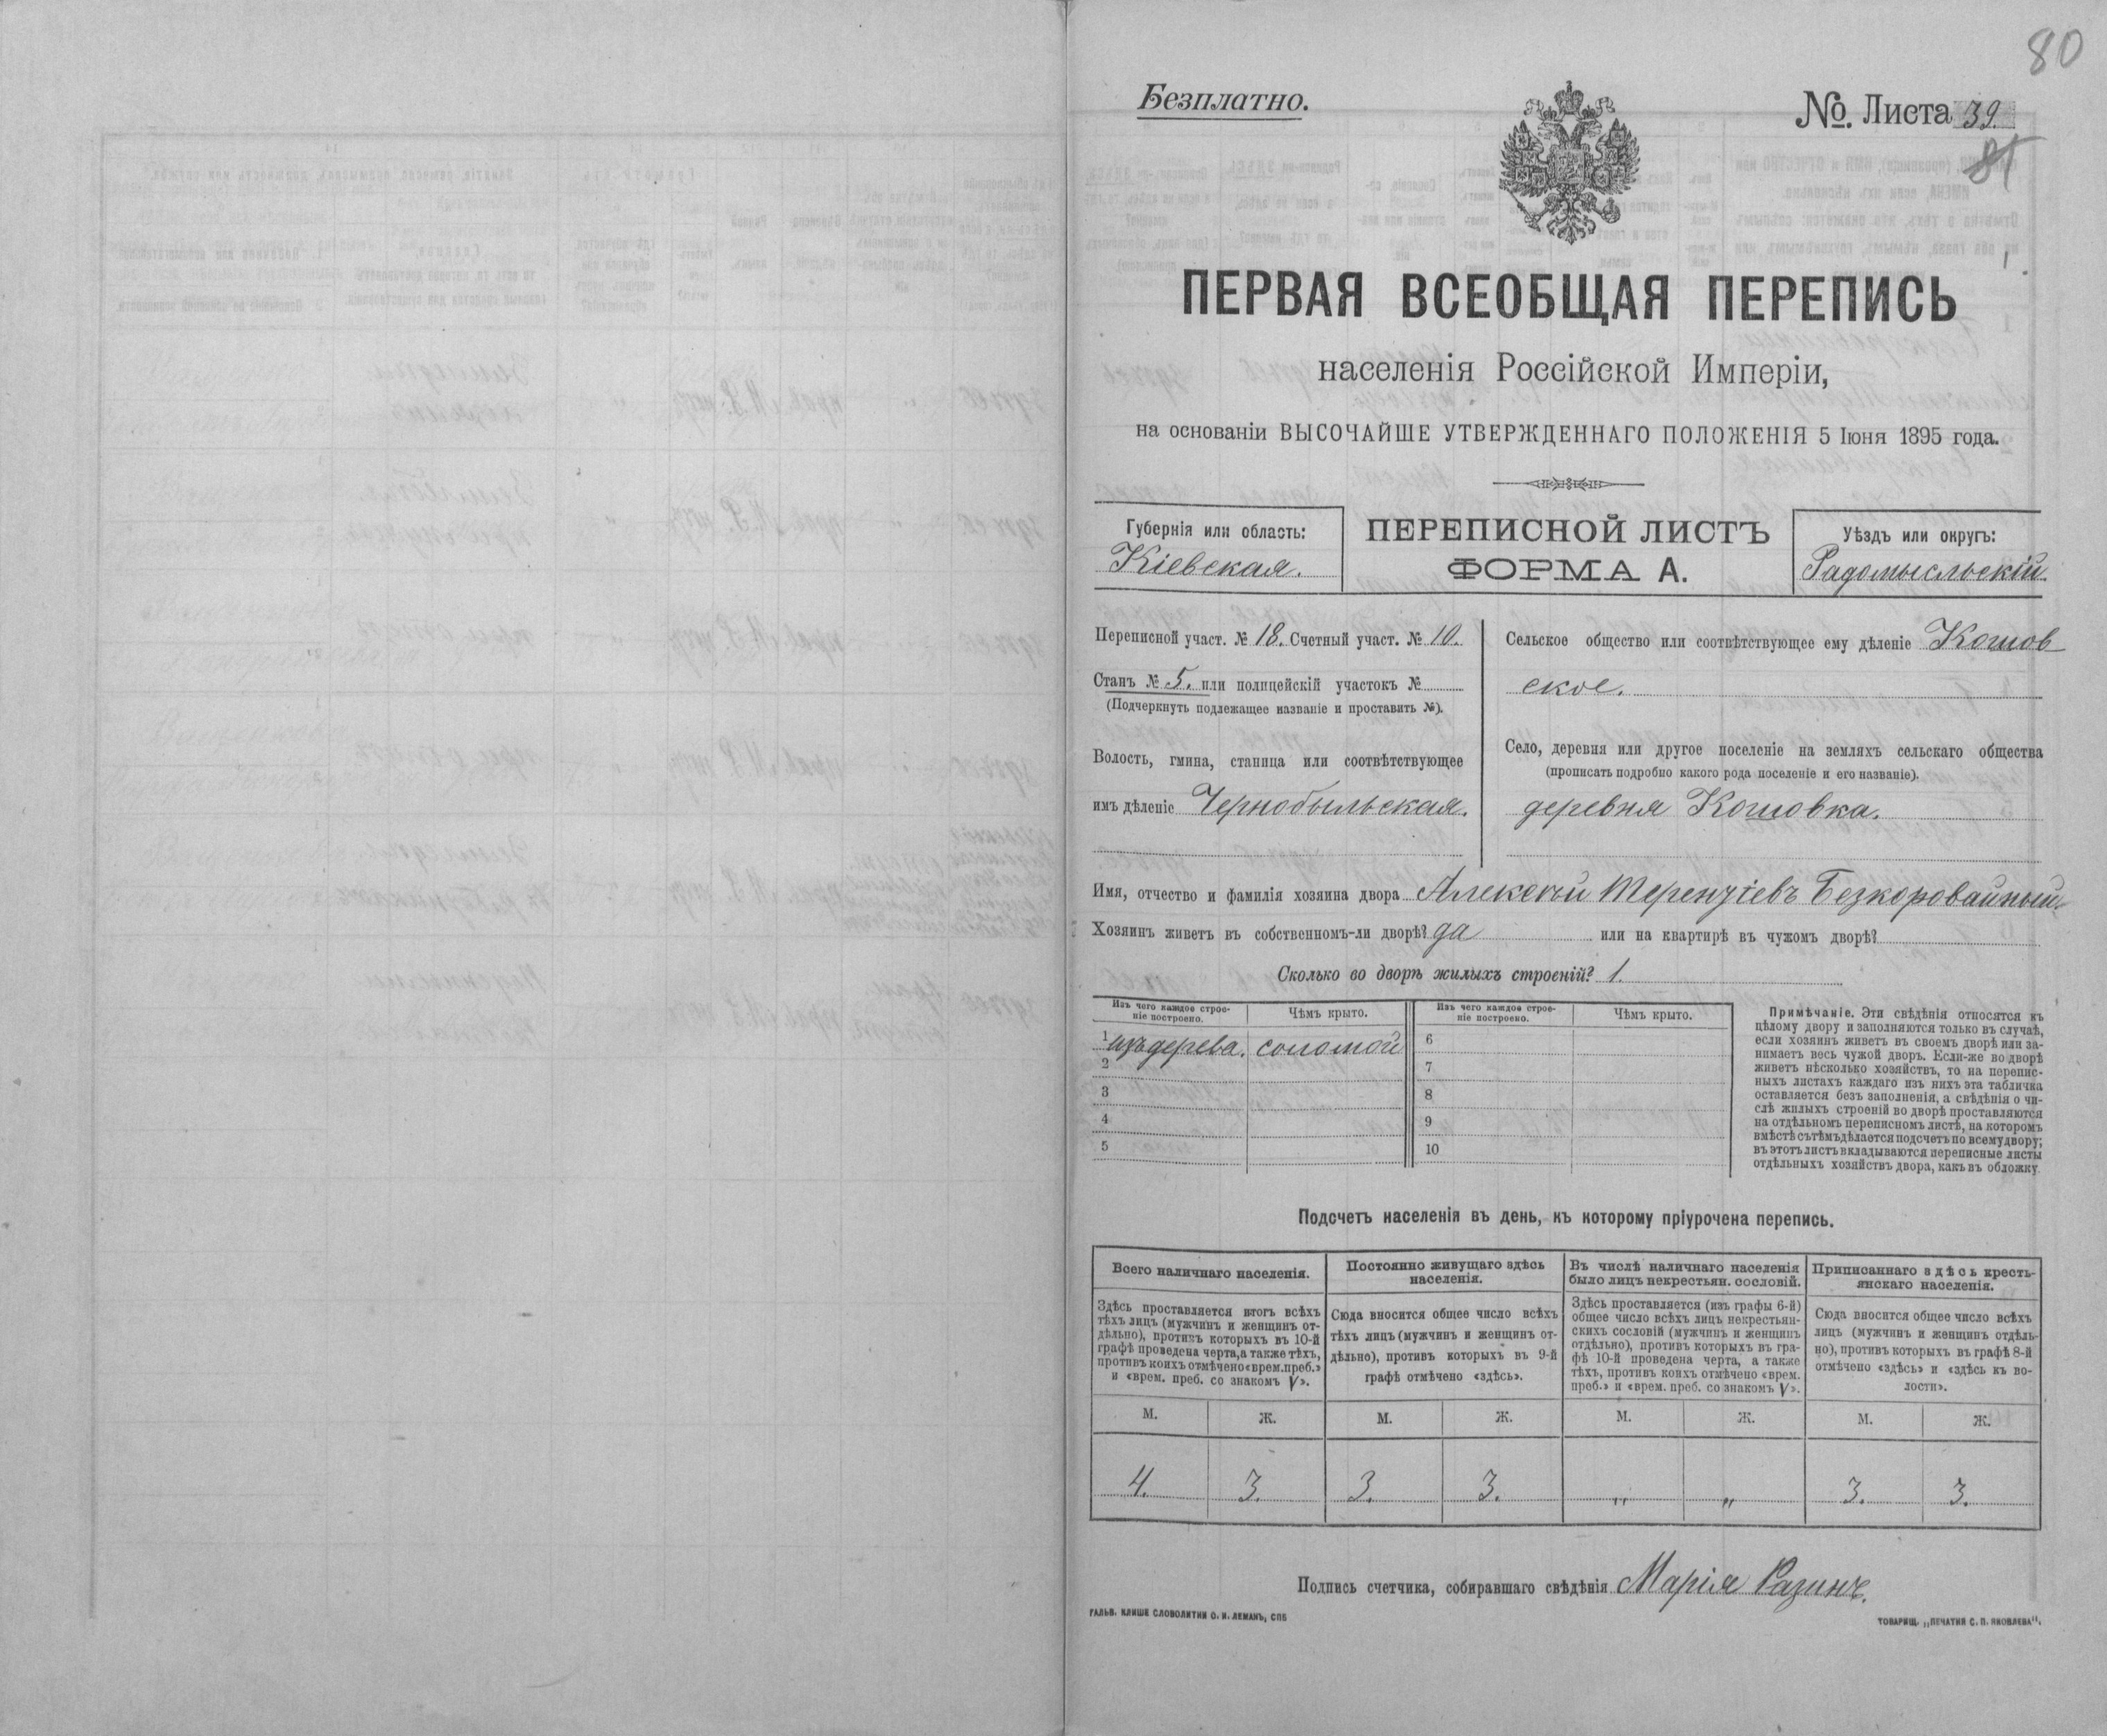 80
Безплатно.
№. Листа 39.
81
1.
ПЕРВАЯ ВСЕОБЩАЯ ПЕРЕПИСЬ
населенія Россійской Имперіи,
на основаніи ВЫСОЧАЙШЕ УТВЕРЖДЕННАГО ПОЛОЖЕНІЯ 5 Іюня 1895 года.
Губернія или область:
Кіевская.
ПЕРЕПИСНОЙ ЛИСТЪ
ФОРМА А.
Уѣздъ или округъ:
Радомысльскій.
Переписной участ. № 18. Счетный участ. № 10.
Станъ № 5. или полицейскій участокъ №
(Подчеркнуть подлежащее названіе и проставить №).
Волость, гмина, станица или соотвѣтствующее
имъ дѣленіе Чернобыльская.
Сельское общество или соотвѣтствующее ему дѣленіе Кошов
ское.
Село, деревня или другое поселеніе на земляхъ сельскаго общества
(прописать подробно какого рода поселеніе и его названіе).
деревня Кошовка.
Имя, отчество и фамилія хозяина двора Алексѣй Терентіевъ Безкоровайный.
Хозяинъ живетъ въ собственномъ-ли дворѣ? да или на квартирѣ въ чужомъ дворѣ?
Сколько во дворѣ жилыхъ строеній? 1.
Изъ чего каждое строе-
ніе построено.
Чѣмъ крыто.
Изъ чего каждое строе-
ніе построено.
Чѣмъ крыто.
1 изъ дерева. соломой 6
2 7
3 8
4 9
5 10
Примѣчаніе. Эти свѣдѣнія относятся къ
цѣлому двору и заполняются только въ случаѣ,
если хозяинъ живетъ въ своемъ дворѣ или за-
нимаетъ весь чужой дворъ. Если-же во дворѣ
живетъ нѣсколько хозяйствъ, то на перепис-
ныхъ листахъ каждаго изъ нихъ эта табличка
оставляется безъ заполненія, а свѣдѣнія о чи-
слѣ жилыхъ строеній во дворѣ проставляются
на отдѣльномъ переписномъ листѣ, на которомъ
вмѣстѣ съ тѣмъ дѣлается подсчетъ по всему двору;
въ этотъ листъ вкладываются переписные листы
отдѣльныхъ хозяйствъ двора, какъ въ обложку.
Подсчетъ населенія въ день, къ которому пріурочена перепись.
Всего наличнаго населенія.
Здѣсь проставляется итогъ всѣхъ
тѣхъ лицъ (мужчинъ и женщинъ от-
дѣльно), противъ которыхъ въ 10-й
графѣ проведена черта, а также тѣхъ,
противъ коихъ отмѣчено «врем. преб.»
и «врем. преб. со знакомъ V».
Постоянно живущаго здѣсь
населенія.
Сюда вносится общее число всѣхъ
тѣхъ лицъ (мужчинъ и женщинъ от-
дѣльно), противъ которыхъ въ 9-й
графѣ отмѣчено «здѣсь».
Въ числѣ наличнаго населенія
было лицъ некрестьян. сословій.
Здѣсь проставляется (изъ графы 6-й)
общее число всѣхъ лицъ некрестьян-
скихъ сословій (мужчинъ и женщинъ
отдѣльно), противъ которыхъ въ гра-
фѣ 10-й проведена черта, а также
тѣхъ, противъ коихъ отмѣчено «врем.
преб.» и «врем. преб. со знакомъ V».
Приписаннаго здѣсь кресть-
янскаго населенія.
Сюда вносится общее число всѣхъ
лицъ (мужчинъ и женщинъ отдѣль-
но), противъ которыхъ въ графѣ 8-й
отмѣчено «здѣсь» и «здѣсь къ во-
лости».
М. Ж. М. Ж. М. Ж. М. Ж.
4. 3. 3. 3. „ „ 3. 3.
Подпись счетчика, собиравшаго свѣдѣнія Марія Разинъ.
ГАЛЬВ. КЛИШЕ СЛОВОЛИТНИ О. И. ЛЕМАНЪ, СПБ
ТОВАРИЩ. „ПЕЧАТНЯ С. П. ЯКОВЛЕВА".